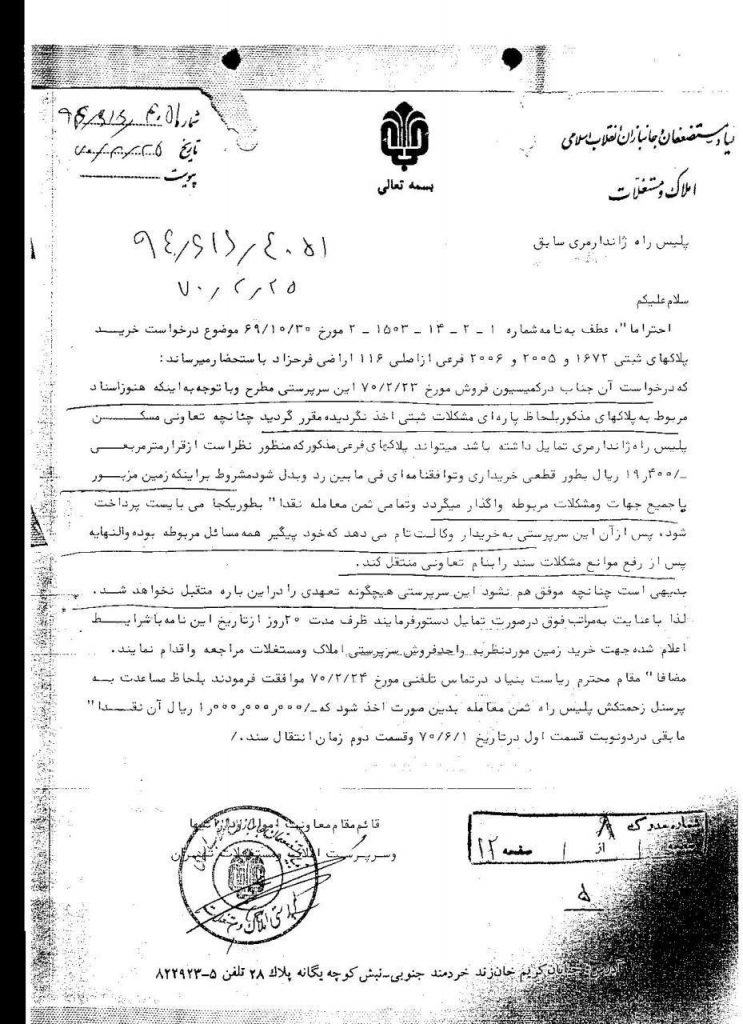 بنیاد مستضعفان و جانبازان انقلاب اسلامی
املاک و مستغلات
بسمه تعالی
شماره ۹۴/۶۱۶/۴۰۵۱
تاریخ ۷۰/۲/۲۵
پیوست
پلیس راه ژاندارمری سابق
۹۴/۶۱۶/۴۰۵۱
۷۰/۲/۲۵
سلام علیکم
احتراما"، عطف به نامه شماره ۱ - ۲ - ۱۴ - ۱۵۰۳ - ۲ مورخ ۶۹/۱۰/۳۰ موضوع درخواست خریـد
پلاکهای ثبتی ۱۶۷۲ و ۲۰۰۵ و ۲۰۰۶ فرعی ازاصلی ۱۱۶ اراضی فرحزاد باستحضارمیرساند:
که درخواست آن جناب درکمیسیون فروش مورخ ۷۰/۲/۲۳ این سرپرستی مطرح وباتوجه به اینکه هنوزاسناد
مربوط به پلاکهای مذکوربلحاظ پاره ای مشکلات ثبتی اخذ نگردیده مقرر گردید چنانچه تعاونی مسکـن
پلیس راه ژاندارمری تمایل داشته باشد میتواند پلاکهای فرعی مذکورکه منظور نظراست ازقرارمترمربعی
-/۱۹٫۴۰۰ ریال بطور قطعی خریداری وتوافقنامه ای فی مابین رد وبدل شودمشروط براینکه زمین مزبـور
باجمیع جهات ومشکلات مربوطه واگذار میگردد وتمامی ثمن معامله نقدا" بطوریکجا می بایست پرداخت
شود، پس ازآن این سرپرستی به خریدار وکالت تام می دهد که خود پیگیر همه مسائل مربوطه بوده والنهایه
پس از رفع موانع مشکلات سند رابنام تعاونی منتقل کند.
بدیهی است چنانچه موفق هم نشود این سرپرستی هیچگونه تعهدی رادراین باره متقبل نخواهد شـد.
لذا باعنایت به مراتب فوق درصورت تمایل دستورفرمایند ظرف مدت ۲۰روز ازتاریخ این نامه باشرایـط
اعلام شده جهت خرید زمین موردنظربه واحدفروش سرپرستی املاک ومستغلات مراجعه واقدام نمایند.
مضافا" مقام محترم ریاست بنیاد درتماس تلفنی مورخ ۷۰/۲/۲۴ موافقت فرمودند بلحاظ مساعدت بـه
پرسنل زحمتکش پلیس راه ثمن معامله بدین صورت اخذ شود که -/۱٫۰۰۰٫۰۰۰٫۰۰۰ ریال آن نقـدا"
مابقی دردونوبت قسمت اول درتاریخ ۷۰/۶/۱ وقسمت دوم زمان انتقال سند./
قائم مقام معاونت
وسرپرست املاک ومستغلات تهران
شماره مدرک ۸
صفحه ۱ از ۱ صفحه ۱۲
۵
آدرس: خیابان کریم خان زند خردمند جنوبی-نبش کوچه یگانه پلاک ۲۸ تلفن ۵-۸۲۲۹۲۳